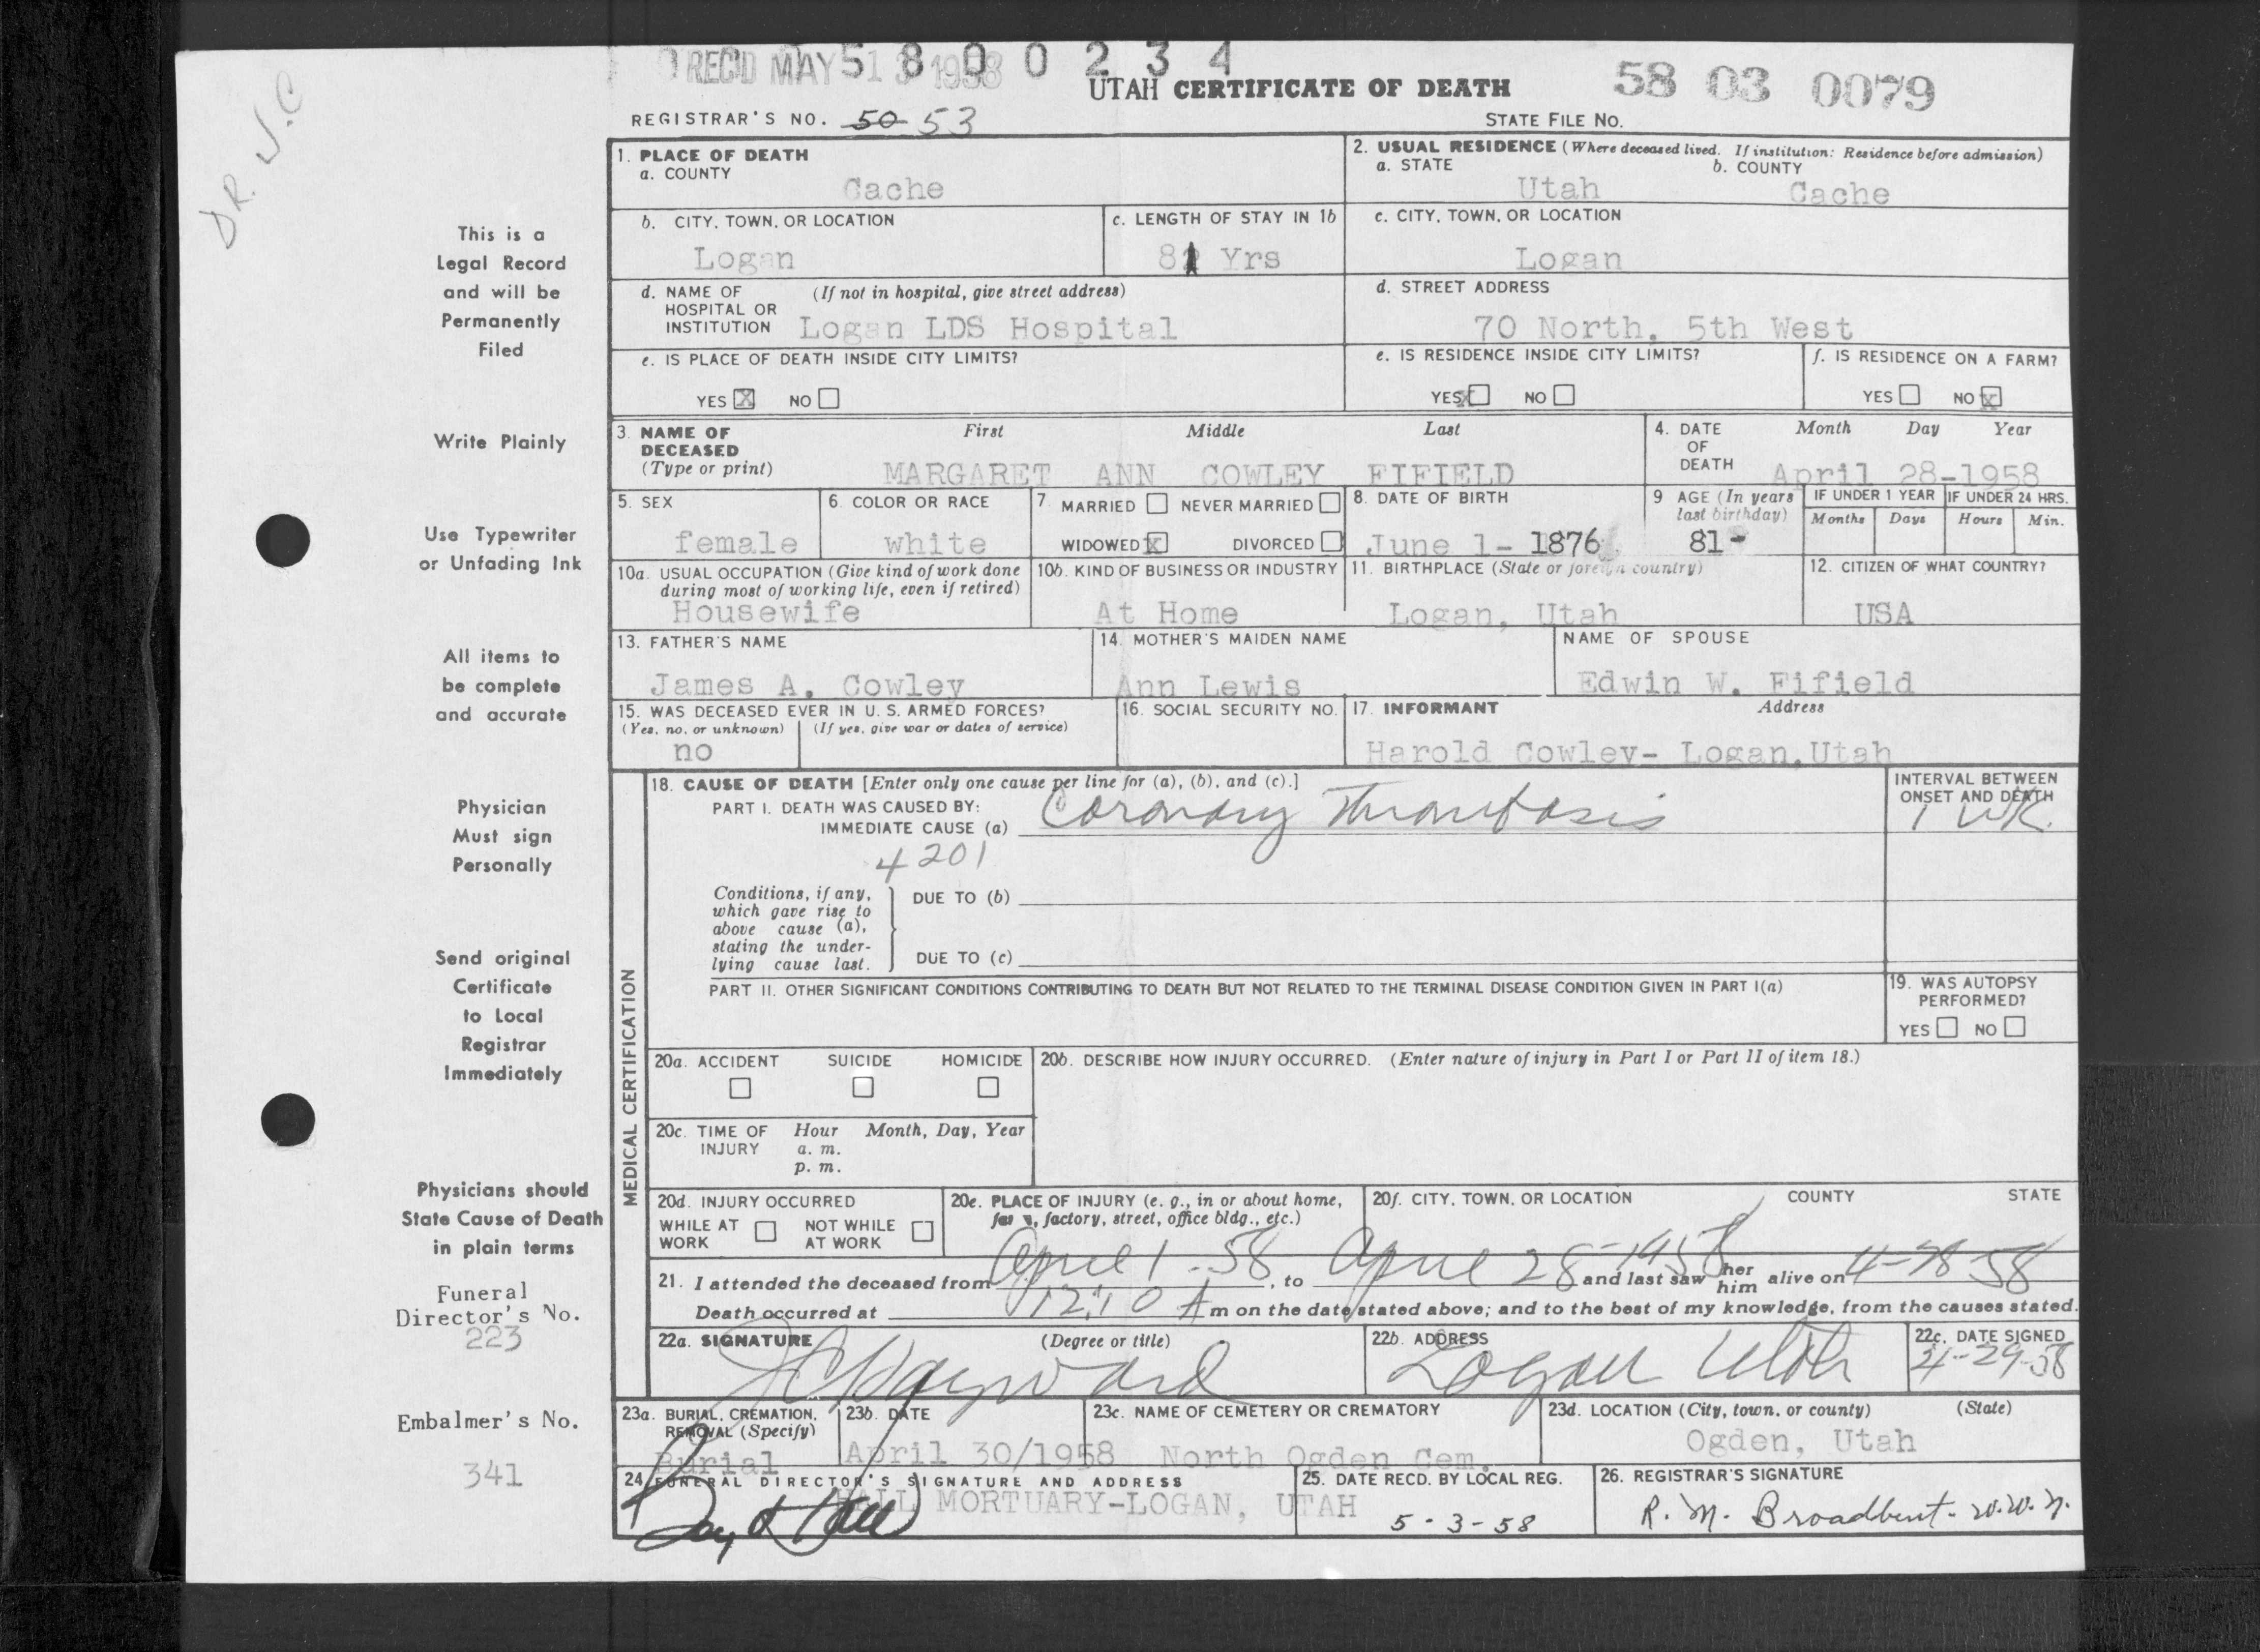 REC'D MAY 1958
5 8 0 0 2 3 4
UTAH CERTIFICATE OF DEATH
58 03 0079
REGISTRAR'S NO. 50 53
STATE FILE NO.
DR. J.C
This is a
Legal Record
and will be
Permanently
Filed
Write Plainly
Use Typewriter
or Unfading Ink
All items to
be complete
and accurate
Physician
Must sign
Personally
Send original
Certificate
to Local
Registrar
Immediately
Physicians should
State Cause of Death
in plain terms
Funeral
Director's No.
223
Embalmer's No.
341
1. PLACE OF DEATH
a. COUNTY
Cache
2. USUAL RESIDENCE (Where deceased lived. If institution: Residence before admission)
a. STATE b. COUNTY
Utah Cache
b. CITY, TOWN, OR LOCATION
Logan
c. LENGTH OF STAY IN 1b
81 Yrs
c. CITY, TOWN, OR LOCATION
Logan
d. NAME OF (If not in hospital, give street address)
HOSPITAL OR
INSTITUTION Logan LDS Hospital
d. STREET ADDRESS
70 North, 5th West
e. IS PLACE OF DEATH INSIDE CITY LIMITS?
YES X NO
e. IS RESIDENCE INSIDE CITY LIMITS?
YES X NO
f. IS RESIDENCE ON A FARM?
YES NO X
3. NAME OF First Middle Last
DECEASED
(Type or print) MARGARET ANN COWLEY FIFIELD
4. DATE Month Day Year
OF
DEATH April 28-1958
5. SEX
female
6. COLOR OR RACE
white
7 MARRIED NEVER MARRIED
WIDOWED X DIVORCED
8. DATE OF BIRTH
June 1- 1876
9 AGE (In years
last birthday)
81-
IF UNDER 1 YEAR IF UNDER 24 HRS.
Months Days Hours Min.
10a. USUAL OCCUPATION (Give kind of work done
during most of working life, even if retired)
Housewife
10b. KIND OF BUSINESS OR INDUSTRY
At Home
11. BIRTHPLACE (State or foreign country)
Logan, Utah
12. CITIZEN OF WHAT COUNTRY?
USA
13. FATHER'S NAME
James A. Cowley
14. MOTHER'S MAIDEN NAME
Ann Lewis
NAME OF SPOUSE
Edwin W. Fifield
15. WAS DECEASED EVER IN U. S. ARMED FORCES?
(Yes, no, or unknown) (If yes, give war or dates of service)
no
16. SOCIAL SECURITY NO.
17. INFORMANT Address
Harold Cowley- Logan,Utah
MEDICAL CERTIFICATION
18. CAUSE OF DEATH [Enter only one cause per line for (a), (b), and (c).]
PART I. DEATH WAS CAUSED BY:
IMMEDIATE CAUSE (a) Coronary Thrombosis
INTERVAL BETWEEN
ONSET AND DEATH
1 WK.
4201
Conditions, if any,
which gave rise to
above cause (a),
stating the under-
lying cause last.
DUE TO (b)
DUE TO (c)
PART II. OTHER SIGNIFICANT CONDITIONS CONTRIBUTING TO DEATH BUT NOT RELATED TO THE TERMINAL DISEASE CONDITION GIVEN IN PART I(a)
19. WAS AUTOPSY
PERFORMED?
YES NO
20a. ACCIDENT SUICIDE HOMICIDE
20b. DESCRIBE HOW INJURY OCCURRED. (Enter nature of injury in Part I or Part II of item 18.)
20c. TIME OF Hour Month, Day, Year
INJURY a. m.
p. m.
20d. INJURY OCCURRED
WHILE AT NOT WHILE
WORK AT WORK
20e. PLACE OF INJURY (e. g., in or about home,
farm, factory, street, office bldg., etc.)
20f. CITY, TOWN, OR LOCATION COUNTY STATE
21. I attended the deceased from April 1-58, to April 28-1958 and last saw her him alive on 4-28-58
Death occurred at 12:10 A m on the date stated above; and to the best of my knowledge, from the causes stated.
22a. SIGNATURE (Degree or title)
JC Hayward
22b. ADDRESS
Logan Utah
22c. DATE SIGNED
4-29-58
23a. BURIAL, CREMATION,
REMOVAL (Specify)
Burial
23b. DATE
April 30/1958
23c. NAME OF CEMETERY OR CREMATORY
North Ogden Cem.
23d. LOCATION (City, town, or county) (State)
Ogden, Utah
24. FUNERAL DIRECTOR'S SIGNATURE AND ADDRESS
HALL MORTUARY-LOGAN, UTAH
25. DATE RECD. BY LOCAL REG.
5-3-58
26. REGISTRAR'S SIGNATURE
R. M. Broadbent- W.W.N.